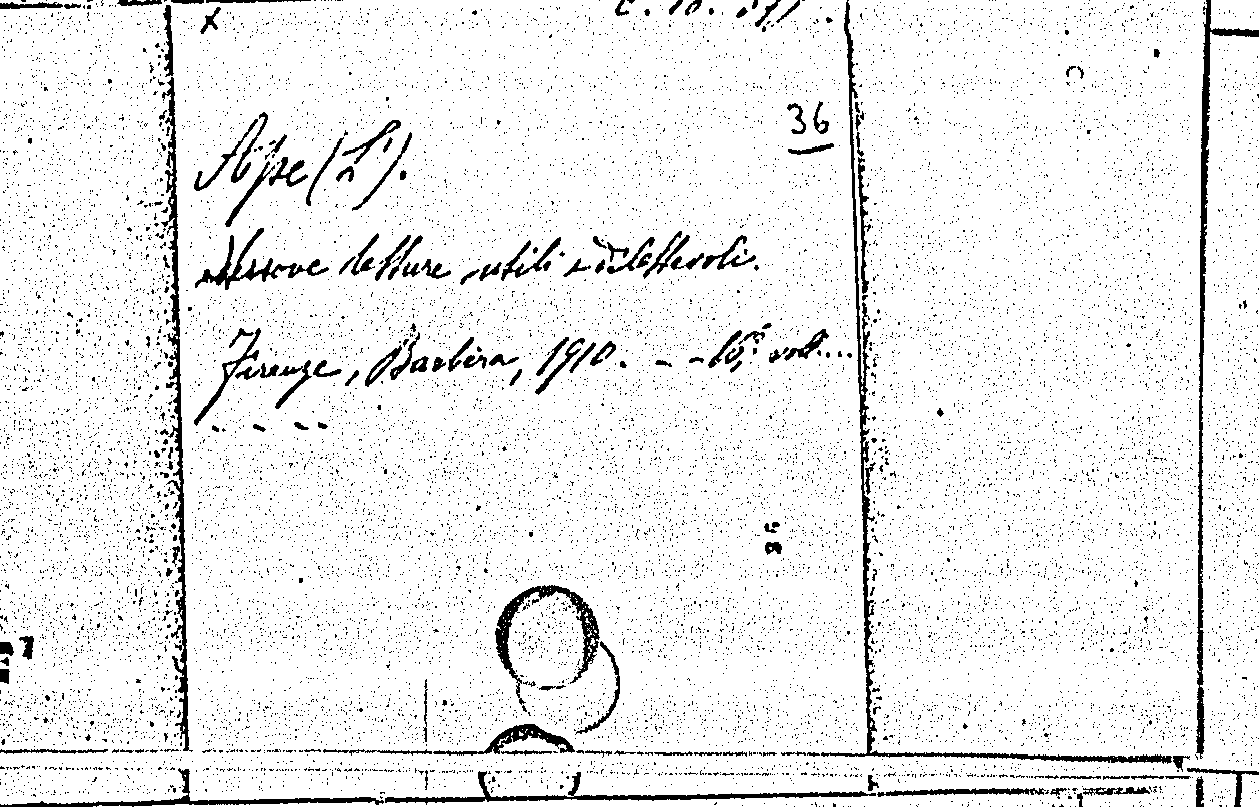 x
36
Ape (L').
Nuove letture utili e dilettevoli.
Firenze, Barbèra, 1910. - - 16° vol....
. - - - -
36